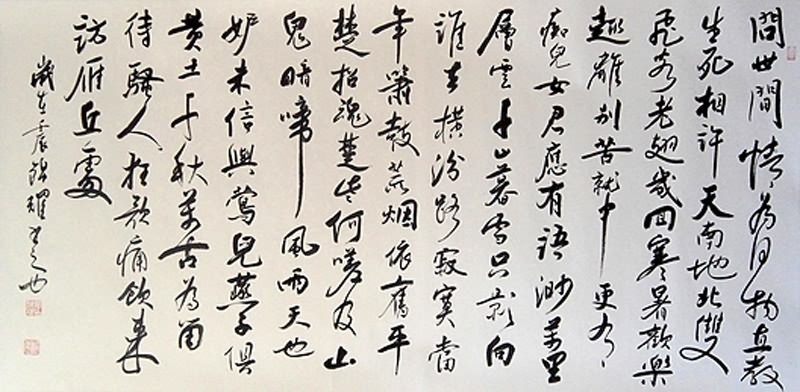 問世間情為何物直教
生死相許天南地北雙
飛客老翅幾回寒暑歡樂
趣離別苦就中更有
痴兒女君應有語渺萬里
層雲千山暮雪只影向
誰去橫汾路寂寞當
年簫鼓荒烟依舊平
楚招魂楚些何嗟及山
鬼暗啼風雨天也
妒未信與鶯兒燕子俱
黃土千秋萬古為留
待騷人狂歌痛飲來
訪雁丘處
歲在錦耀書之也